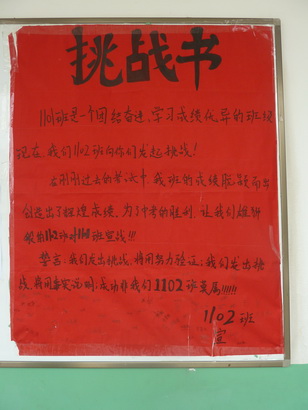 挑战书
1101班是一个团结奋进、学习成绩优异的班级
现在,我们1102班向你们发起挑战!
在刚刚过去的考试中,我班的成绩脱颖而出
创造出了辉煌成绩,为了中考的胜利,让我们雄狮
1102班对1101班宣战!!!
誓言:我们发出挑战,将用努力验证;我们发出挑
战,将用事实证明;成功非我们1102班莫属!!!!!
1102班
宣